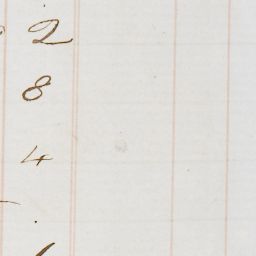 2
8
4